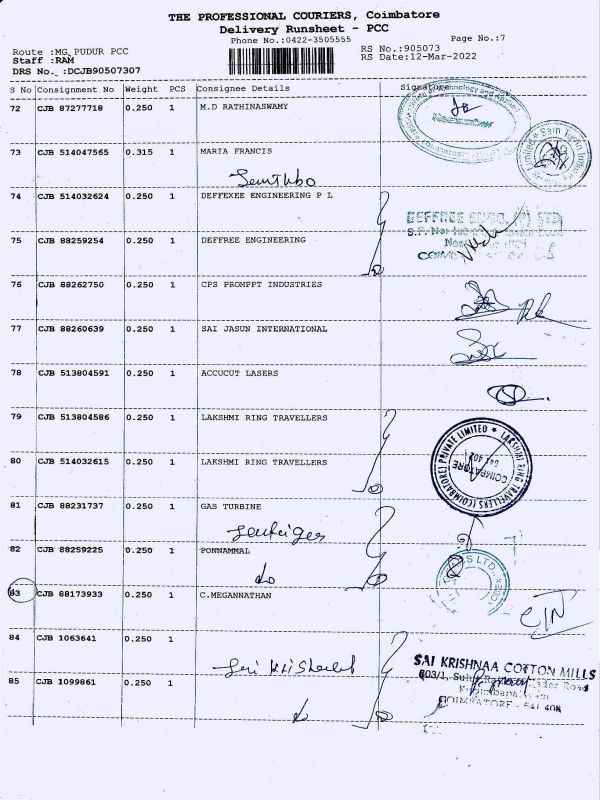 THE PROFESSIONAL COURIERS, Coimbatore
Delivery Runsheet - PCC
Phone No.:0422-3505555 Page No.:7
Route :MG PUDUR PCC RS No.:905073
Staff :RAM RS Date:12-Mar-2022
DRS No. :DCJB90507307
S No Consignment No Weight PCS Consignee Details Signature
72 CJB 87277718 0.250 1 M.D RATHINASWAMY
73 CJB 514047565 0.315 1 MARIA FRANCIS
74 CJB 514032624 0.250 1 DEFFEXEE ENGINEERING P L
DEFFREE ENGG. (P) LTD
75 CJB 88259254 0.250 1 DEFFREE ENGINEERING
76 CJB 88262750 0.250 1 CPS PROMPPT INDUSTRIES
77 CJB 88260639 0.250 1 SAI JASUN INTERNATIONAL
78 CJB 513804591 0.250 1 ACCUCUT LASERS
79 CJB 513804586 0.250 1 LAKSHMI RING TRAVELLERS
LAKSHMI RING TRAVELLERS (COIMBATORE) PRIVATE LIMITED
COIMBATORE
641 402
80 CJB 514032615 0.250 1 LAKSHMI RING TRAVELLERS
81 CJB 88231737 0.250 1 GAS TURBINE
82 CJB 88259225 0.250 1 PONNAMMAL
do
83 CJB 88173933 0.250 1 C.MEGANNATHAN
84 CJB 1063641 0.250 1
SAI KRISHNAA COTTON MILLS
85 CJB 1099861 0.250 1
do
COIMBATORE - 641 408